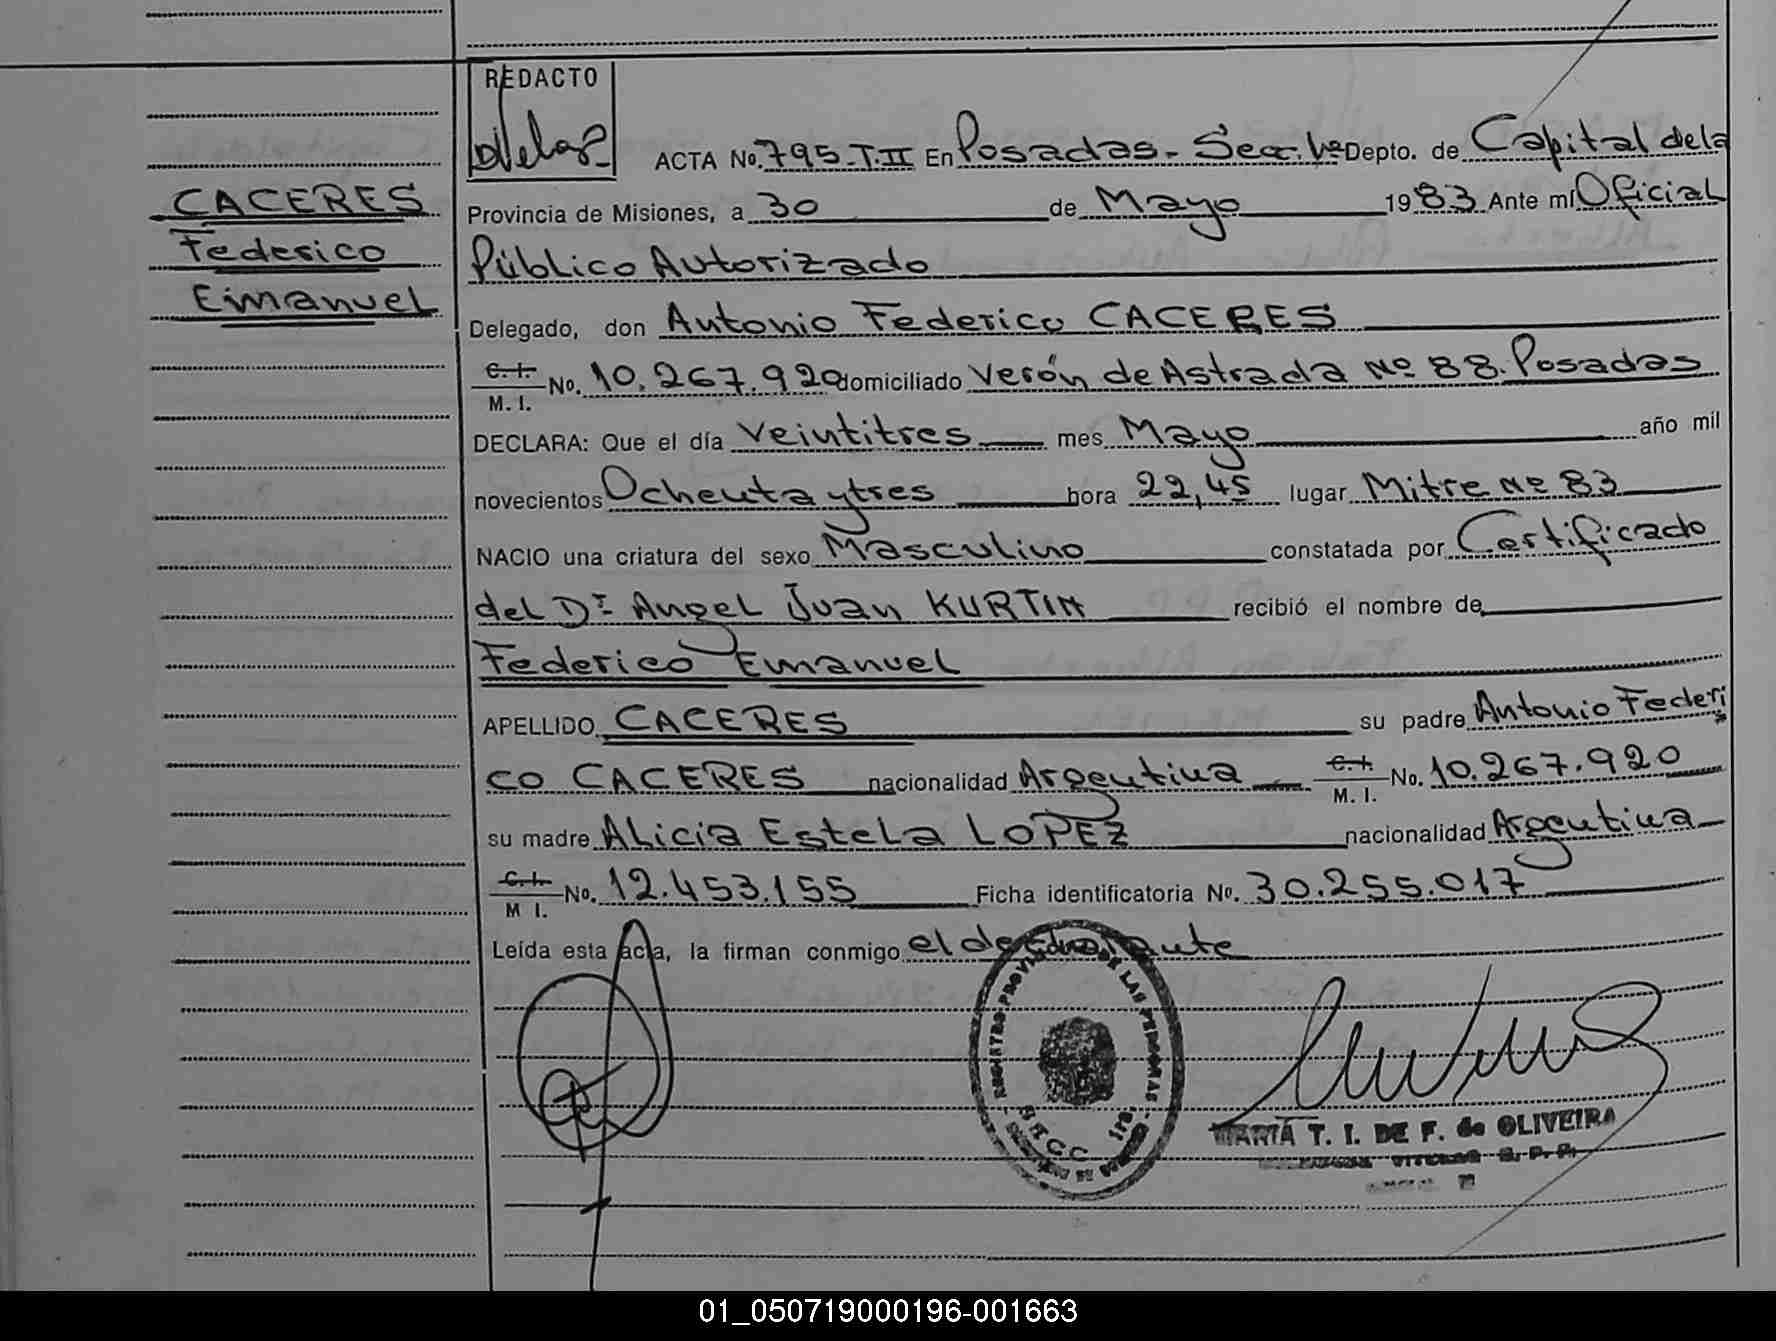 REDACTO
ACTA No. 795-T.II En Posadas - Secc. 1ª Depto. de Capital de la
CACERES
Federico
Emanuel
Provincia de Misiones, a 30 de Mayo 1983 Ante mí Oficial
Público Autorizado
Delegado, don Antonio Federico CACERES
C. I.
M. I. No. 10.267.920 domiciliado Verón de Astrada Nº 88. Posadas
DECLARA: Que el día Veintitres mes Mayo año mil
novecientos Ochenta y tres hora 22,45 lugar Mitre Nº 83
NACIO una criatura del sexo Masculino constatada por Certificado
del Dr Angel Juan KURTIN recibió el nombre de
Federico Emanuel
APELLIDO CACERES su padre Antonio Federi
co CACERES nacionalidad Argentina C. I.
M. I. No. 10.267.920
su madre Alicia Estela LOPEZ nacionalidad Argentina
C. I.
M I. No. 12.453.155 Ficha identificatoria No. 30.255.017
Leída esta acta, la firman conmigo el declarante
REGISTRO PROVINCIAL DE LAS PERSONAS
MARIA T. I. DE F. de OLIVEIRA
01_050719000196-001663